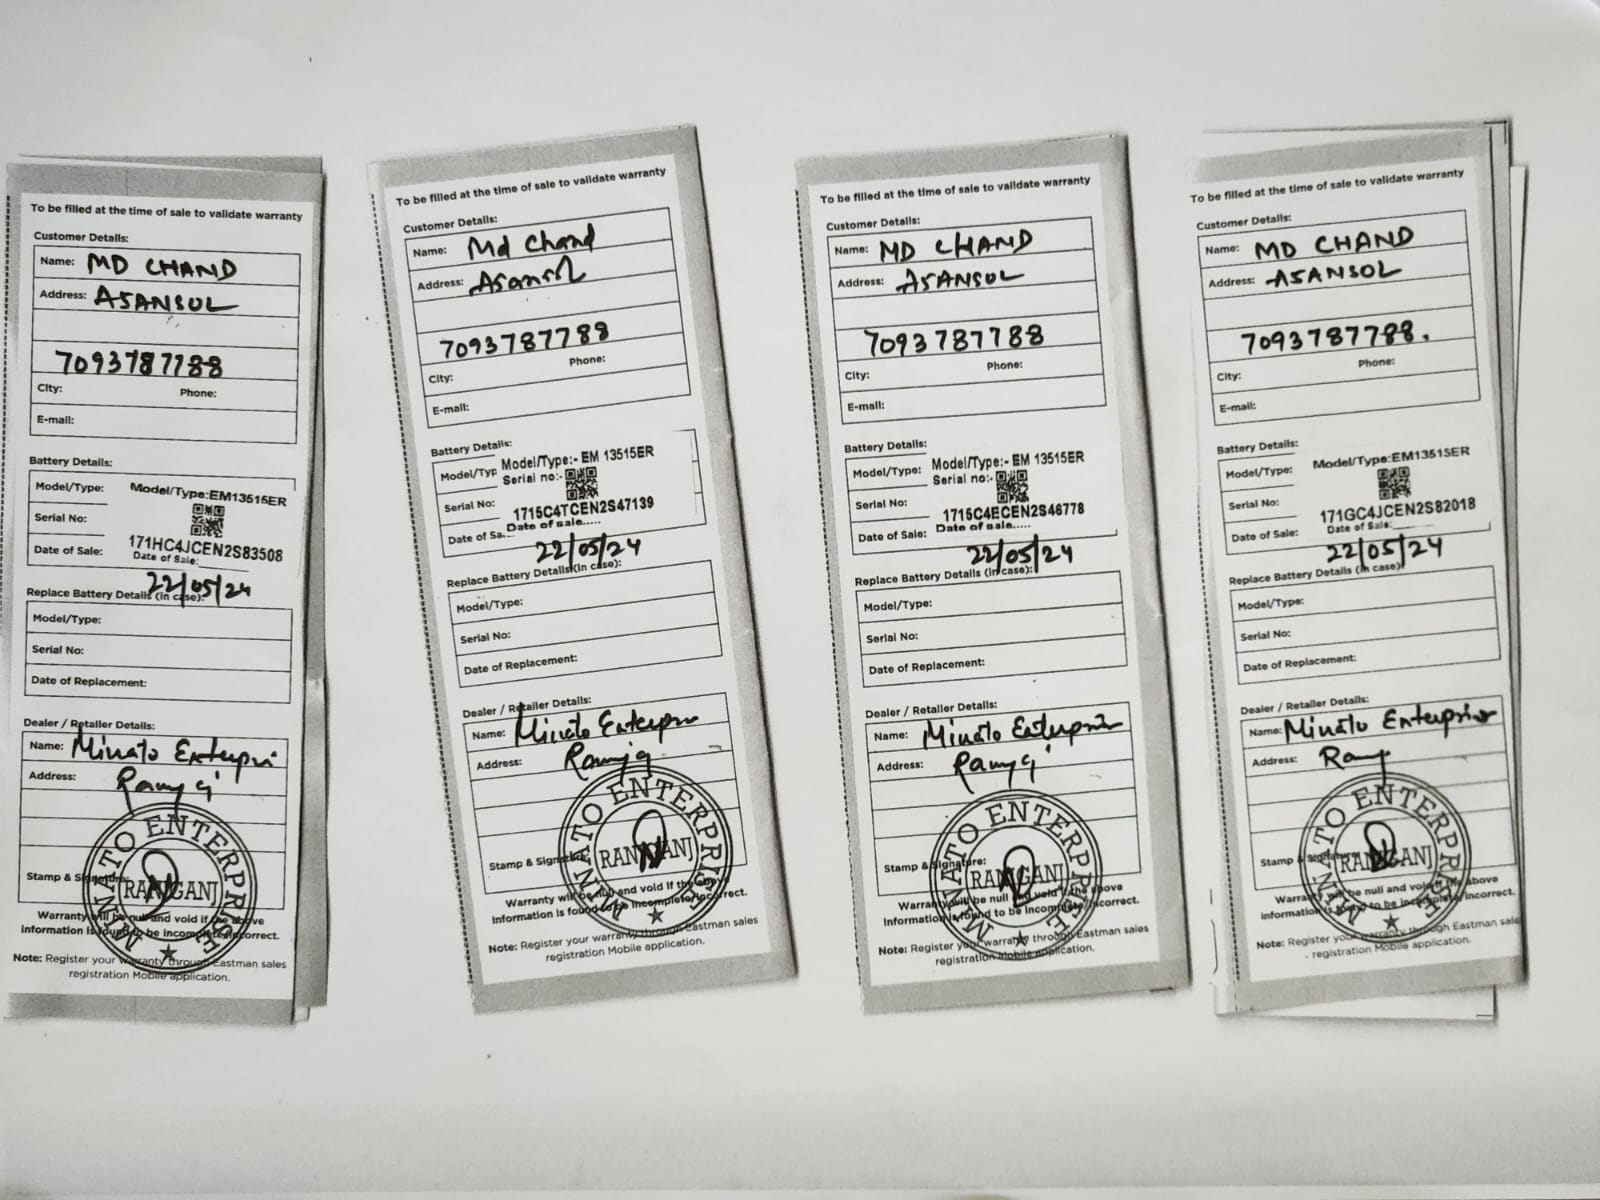 To be filled at the time of sale to validate warranty
Customer Details:
Name: MD CHAND
Address: ASANSOL
7093787788
City: Phone:
E-mail:
Battery Details:
Model/Type: Model/Type:EM13515ER
Serial No: 171HC4JCEN2S83508
Date of Sale: Date of Sale:
22/05/24
Replace Battery Details (in case):
Model/Type:
Serial No:
Date of Replacement:
Dealer / Retailer Details:
Name: Minato Enterpri
Address: Ranigj
MINATO ENTERPRISE
RANIGANJ
Stamp & Signature:
Warranty will be null and void if the above
information is found to be incomplete/incorrect.
Note: Register your warranty through Eastman sales
registration Mobile application.
To be filled at the time of sale to validate warranty
Customer Details:
Name: Md Chand
Address: Asansol
7093787788
City: Phone:
E-mail:
Battery Details:
Model/Typ Model/Type:- EM 13515ER
Serial no:-
Serial No: 1715C4TCEN2S47139
Date of Sa... Date of sale.....
22/05/24
Replace Battery Details(in case):
Model/Type:
Serial No:
Date of Replacement:
Dealer / Retailer Details:
Name: Minato Enterpri
Address: Ranigj
MINATO ENTERPRISE
RANIGANJ
Stamp & Signature:
Warranty will be null and void if the above
information is found to be incomplete/incorrect.
Note: Register your warranty through Eastman sales
registration Mobile application.
To be filled at the time of sale to validate warranty
Customer Details:
Name: MD CHAND
Address: ASANSOL
7093787788
City: Phone:
E-mail:
Battery Details:
Model/Type: Model/Type:- EM 13515ER
Serial no:-
Serial No: 1715C4ECEN2S46778
Date of Sale: Date of sale.....
22/05/24
Replace Battery Details (in case):
Model/Type:
Serial No:
Date of Replacement:
Dealer / Retailer Details:
Name: Minato Enterprise
Address: Ranigj
MINATO ENTERPRISE
RANIGANJ
Stamp & Signature:
Warranty will be null and void if the above
information is found to be incomplete/incorrect.
Note: Register your warranty through Eastman sales
registration Mobile application.
To be filled at the time of sale to validate warranty
Customer Details:
Name: MD CHAND
Address: ASANSOL
7093787788.
City: Phone:
E-mail:
Battery Details:
Model/Type: Model/Type:EM13515ER
Serial No: 171GC4JCEN2S82018
Date of Sale: Date of Sale:
22/05/24
Replace Battery Details (in case)
Model/Type:
Serial No:
Date of Replacement:
Dealer / Retailer Details:
Name: Minato Enterprise
Address:
MINATO ENTERPRISE
RANIGANJ
Stamp & Signature:
Warranty will be null and void if the above
information is found to be incomplete/incorrect.
Note: Register your warranty through Eastman sales
registration Mobile application.